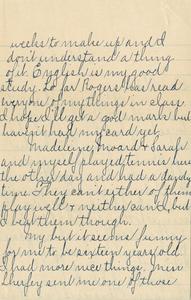 weeks to make up and I
don't understand a thing
of it. English is my good
study. So far Rogers has read
everyone of my things in class
I hope I'll get a good mark but
haven't had my card yet.
Madeline, Howard & Sarah
and myself played tennis here
the other day and had a dandy
time. They can't either of them
play well & neither can I, but
I beat them though.
My but it seems funny
for me to be sixteen years old.
I had more nice things. Miss
Shurley sent me one of those